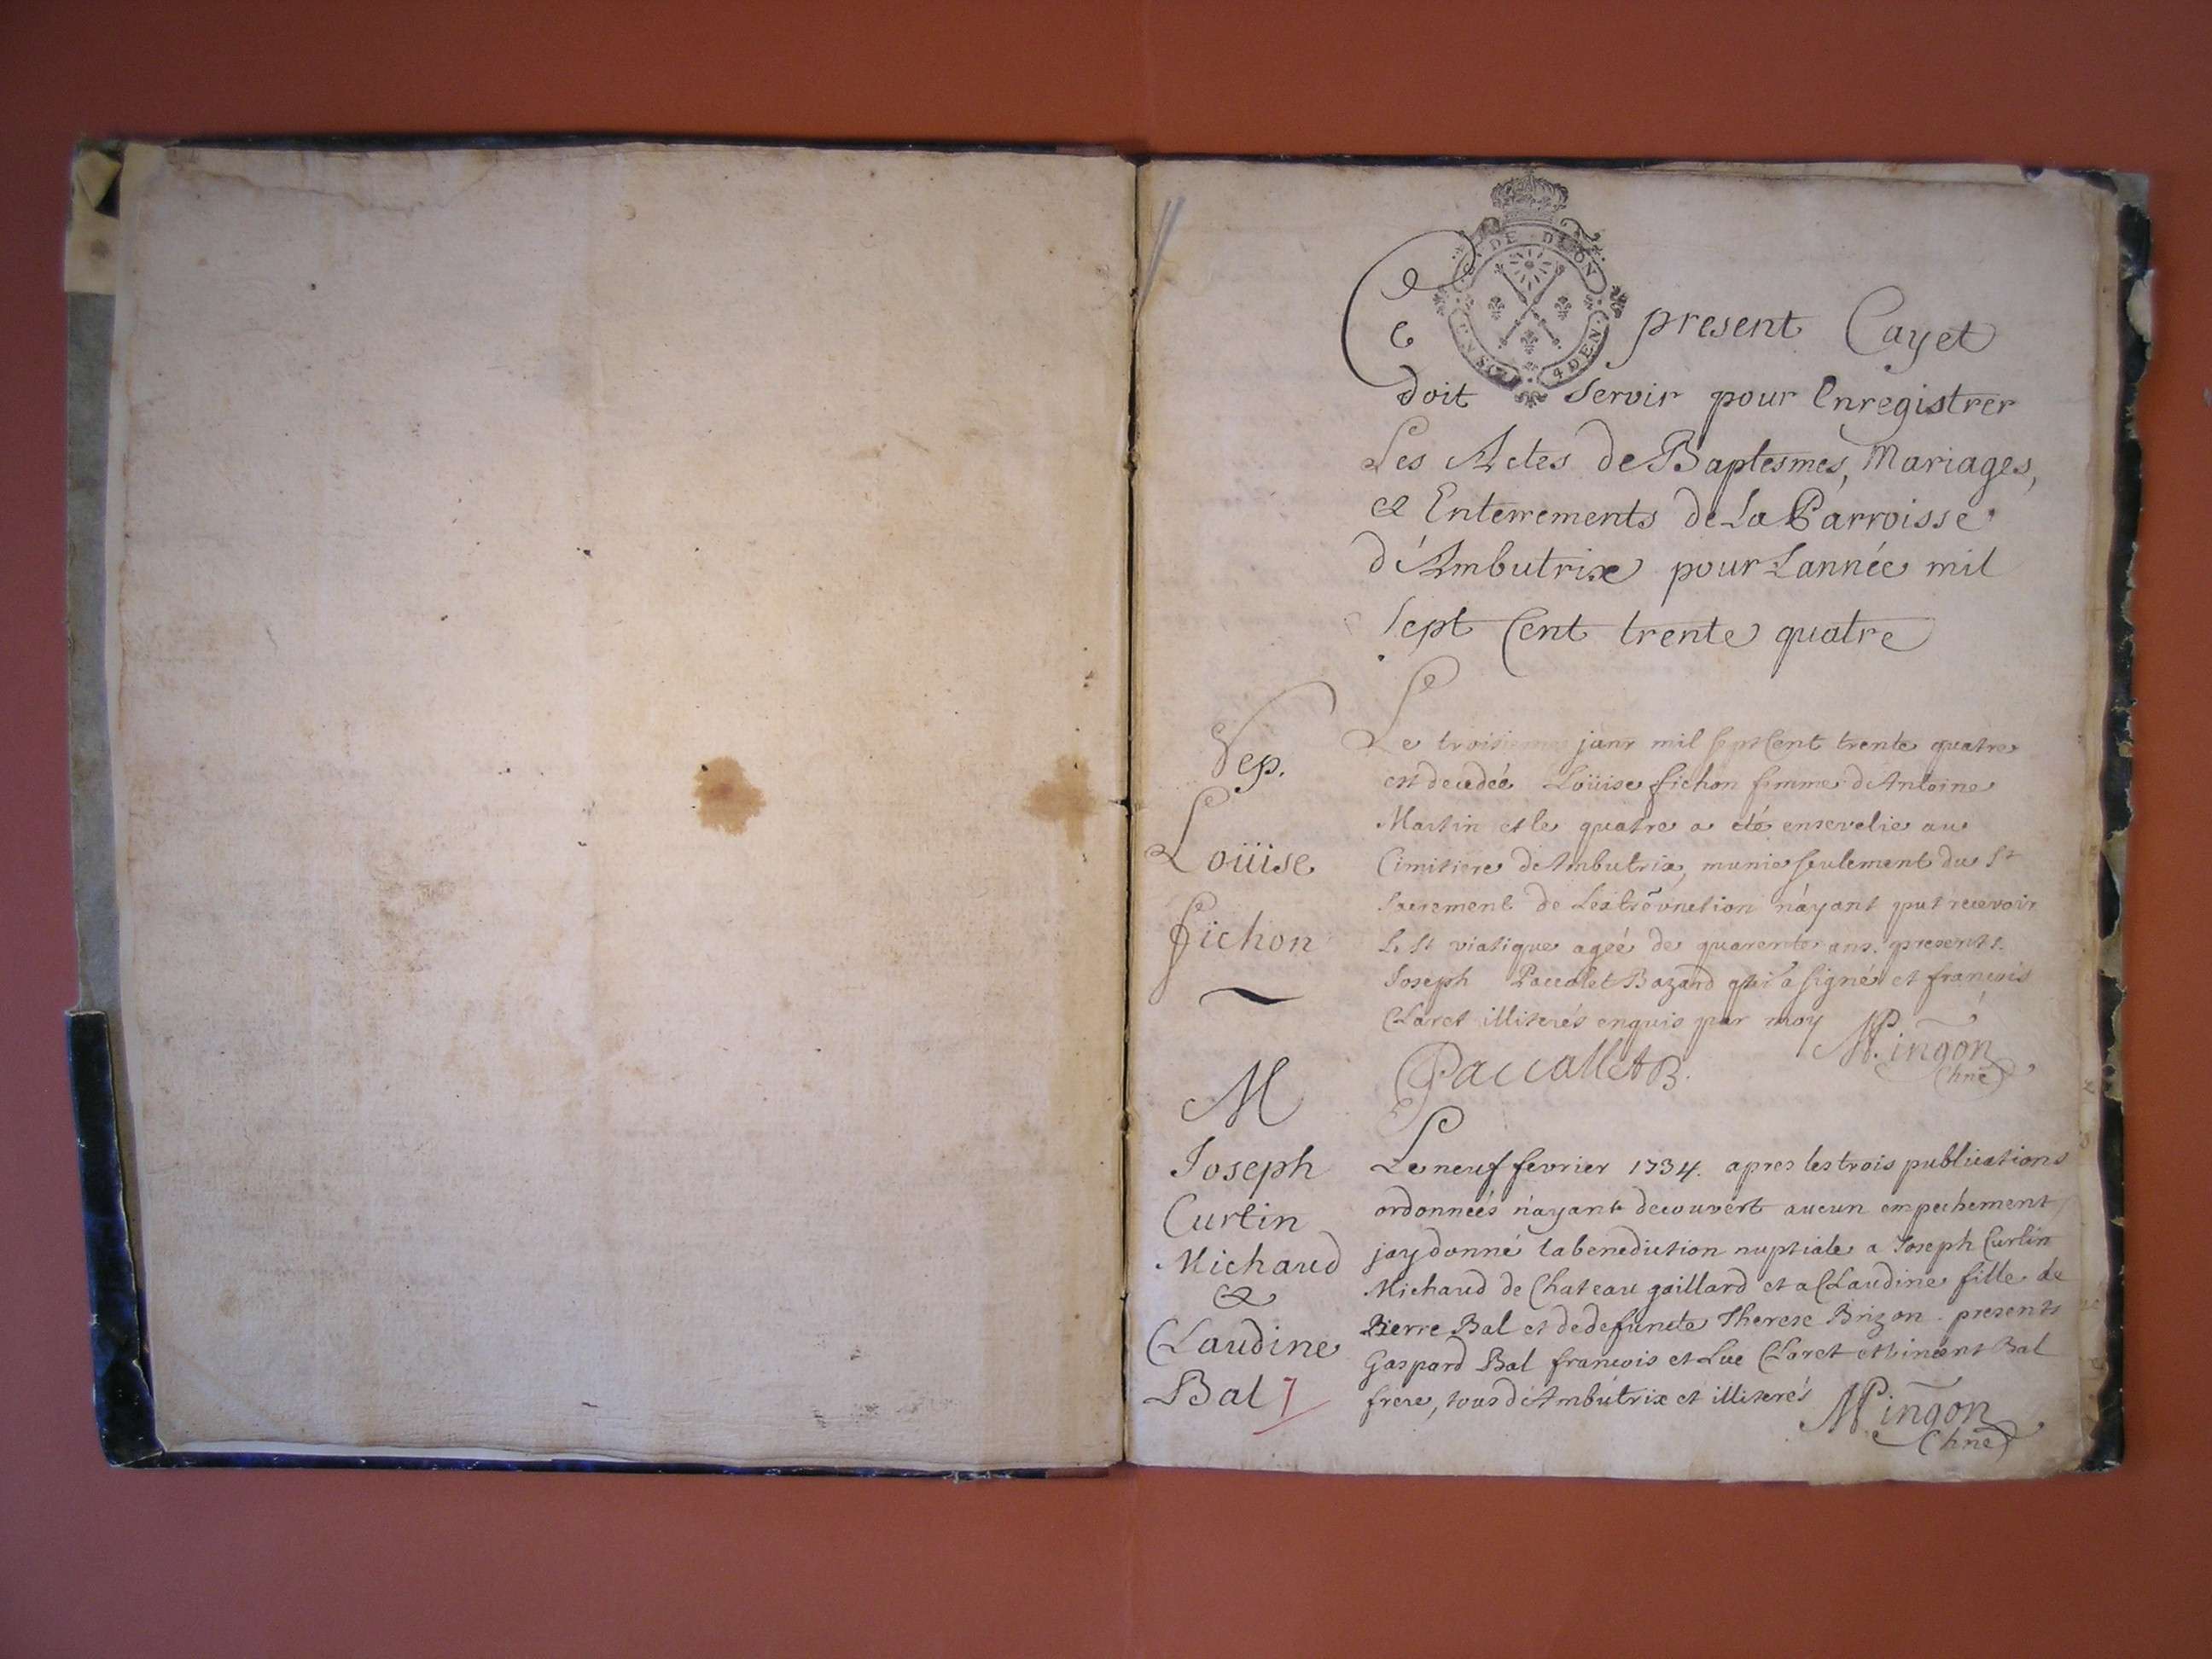 G. DE DIJON
4 DEN.
Ce present Cayet
doit servir pour Enregistrer
Les Actes de Baptesmes, Mariages,
et Enterrements de La Parroisse
d'Ambutrix pour Lannée mil
sept Cent trente quatre
Sep.
Loüise
fichon
Le troisieme janr mil sept Cent trente quatre
est decedée Loüise fichon femme d'Antoine
Martin et le quatre a eté ensevelie au
Cimitiere d'Ambutrix, munie seulement du St
sacrement de Lextrêonction n'ayant put recevoir
le St viatique ageé de quarente ans. presents.
Joseph Paccalet Bazard qui a signé et francois
Claret illiterés enquis par moy
PaccalletB.
Mingon
Cure
M
Joseph
Curtin
Michaud
&
Claudine
Bal 7
Le neuf fevrier 1734. apres les trois publications
ordonneés n'ayant decouvert aucun empechement
jay donné la benediction nuptiale a Joseph Curtin
Michaud de Chateau gaillard et a Claudine fille de
Pierre Bal et de defuncte Therese Brizon. presents
Gaspard Bal francois et Luc Claret et vincent Bal
frere, tous d'Ambutrix et illiterés
Mingon
Cure